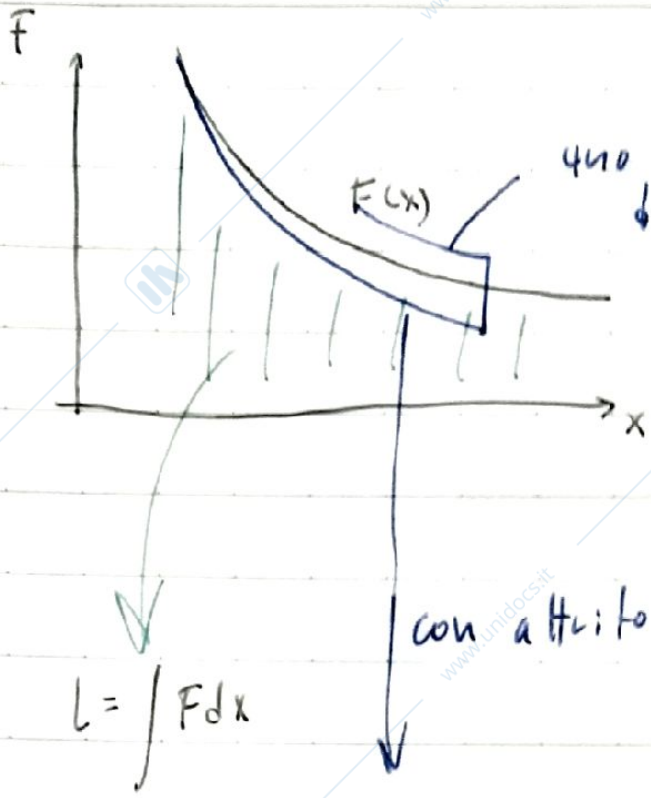 F
F(x)
x
con attrito
L = ∫ F dx
www.unidocs.it